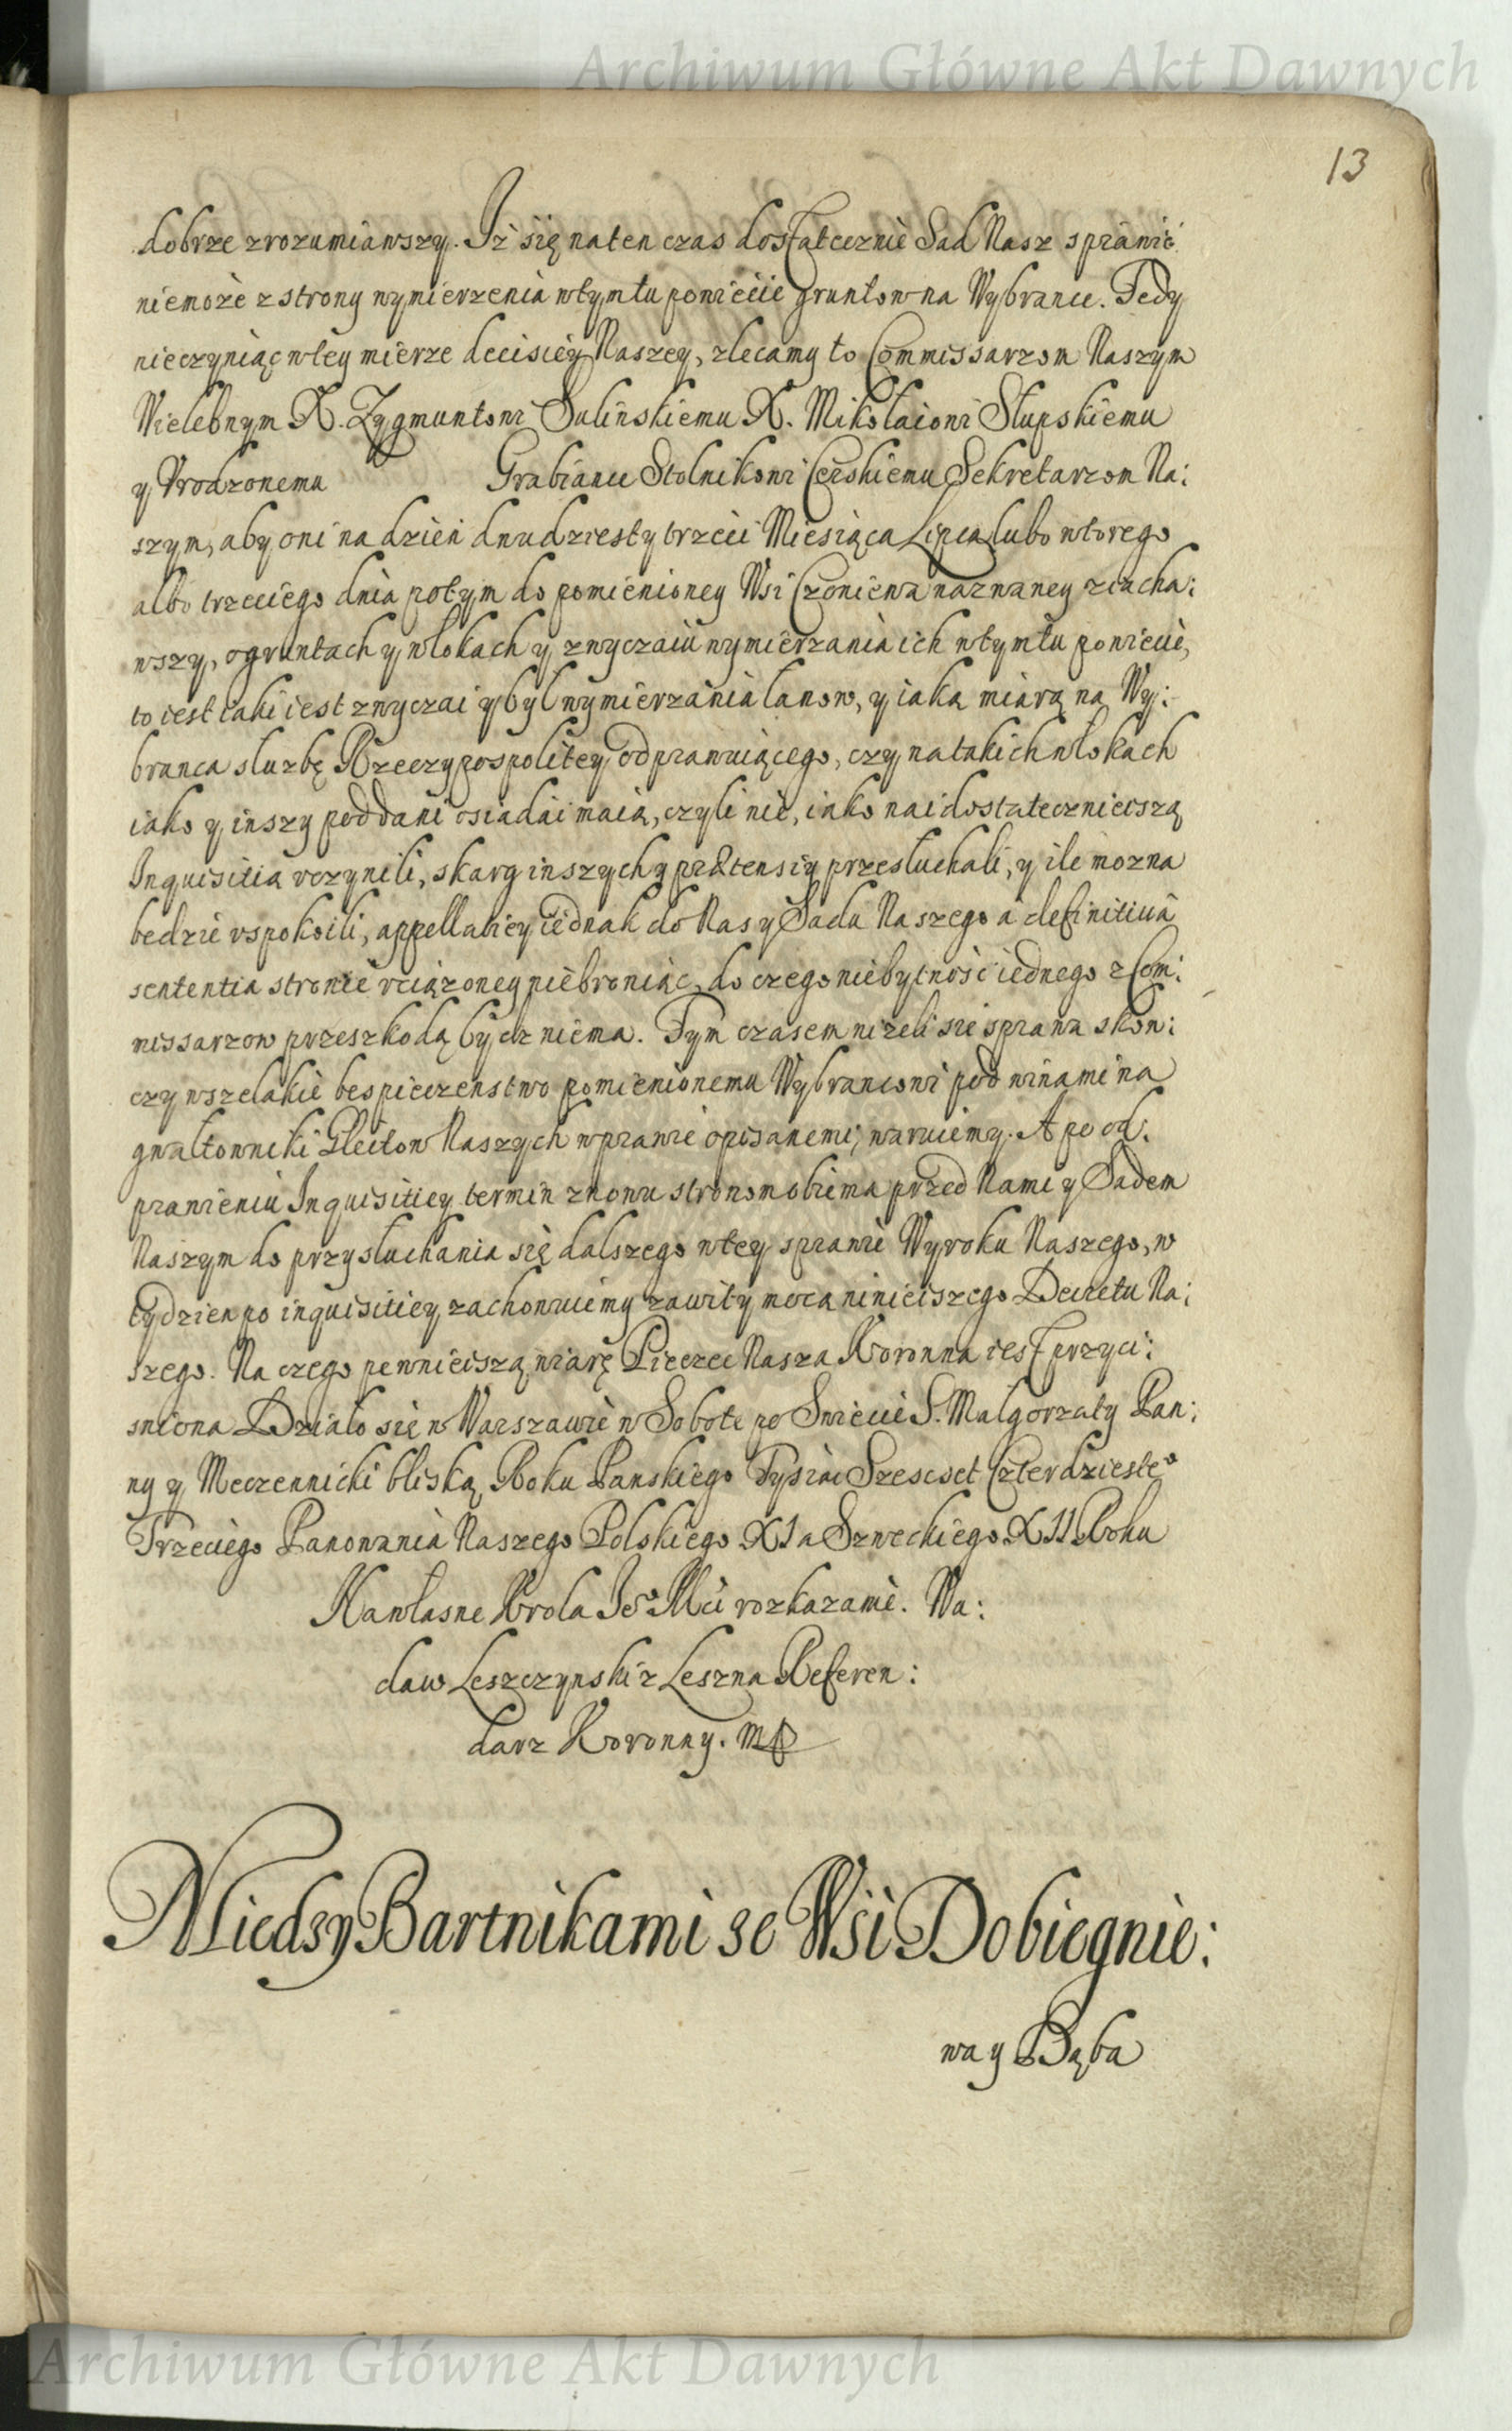 Archiwum Główne Akt Dawnych
13
dobrze zrozumiawszy. Iż się na ten czas dostatecznie Sad Nasz sprawić
niemoże z strony wymierzenia w tymtu powiecie gruntow na Wybrance. Tedy
nieczyniąc w tey mierze decisiey Naszey, zlecamy to Commissarzom Naszym
Wielebnym X. Zygmuntowi Sulinskiemu X. Mikołaiowi Słupskiemu
y Vrodzonemu Grabiance Stolnikowi Cerskiemu Sekretarzom Na:
szym, aby oni na dzien dwudziesty trzeci Miesiąca Lipca lubo wtorego
albo trzeciego dnia potym do pomienioney Wsi Czoniewa nazwaney ziacha:
wszy, o gruntach y włokach y zwyczaiu wymierzania ich w tymtu powiecie,
to iest iaki iest zwyczai y był wymierzania łanow, y iaką miarą na Wy:
branca służbę Rzeczypospolitey odprawuiącego, czy na takich włokach
iako y inszy poddani osiadai maią, czyli nie, iako naidostatecznieiszą
Inquisitią vczynili, skarg inszych y prætensiy przesłuchali, y ile mozna
bedzie vspokoili, appellatiey iednak do Nas y Sadu Naszego a definitiua
sententia stronie vciązoney niebroniąc, do czego niebytność iednego z Com:
missarzow przeszkodą bydz niema. Tym czasem nizeli sie sprawa skon:
czy wszelakie bespieczenstwo pomienionemu Wybrancowi pod winami na
gwałtowniki Gleitow Naszych w prawie opisanemi, waruiemy. A po od:
prawieniu Inquisitiey termin znowu stronom obiema przed Nami y Sadem
Naszym do przysłuchania się dalszego w tey sprawie Wyroku Naszego, w
tydzien po inquisitiey zachowuiemy zawity mocą ninieiszego Decretu Na:
szego. Na czego pewnieiszą wiarę Pieczec Nasza Koronna iest przyci:
sniona Działo się w Warszawie w Sobote po Swiecie S. Małgorzaty Pan:
ny y Meczennicki bliską Roku Panskiego Tysiac Szescset Czterdziesteo
Trzeciego Panowania Naszego Polskiego XI a Szweckiego XII Roku
Na własne Krola Jeo Mci rozkazanie. Wa:
cław Leszczynski z Leszna Referen:
darz Koronny. mp
Miedzy Bartnikami ze Wsi Dobiegnie:
wa y Bąba
Archiwum Główne Akt Dawnych